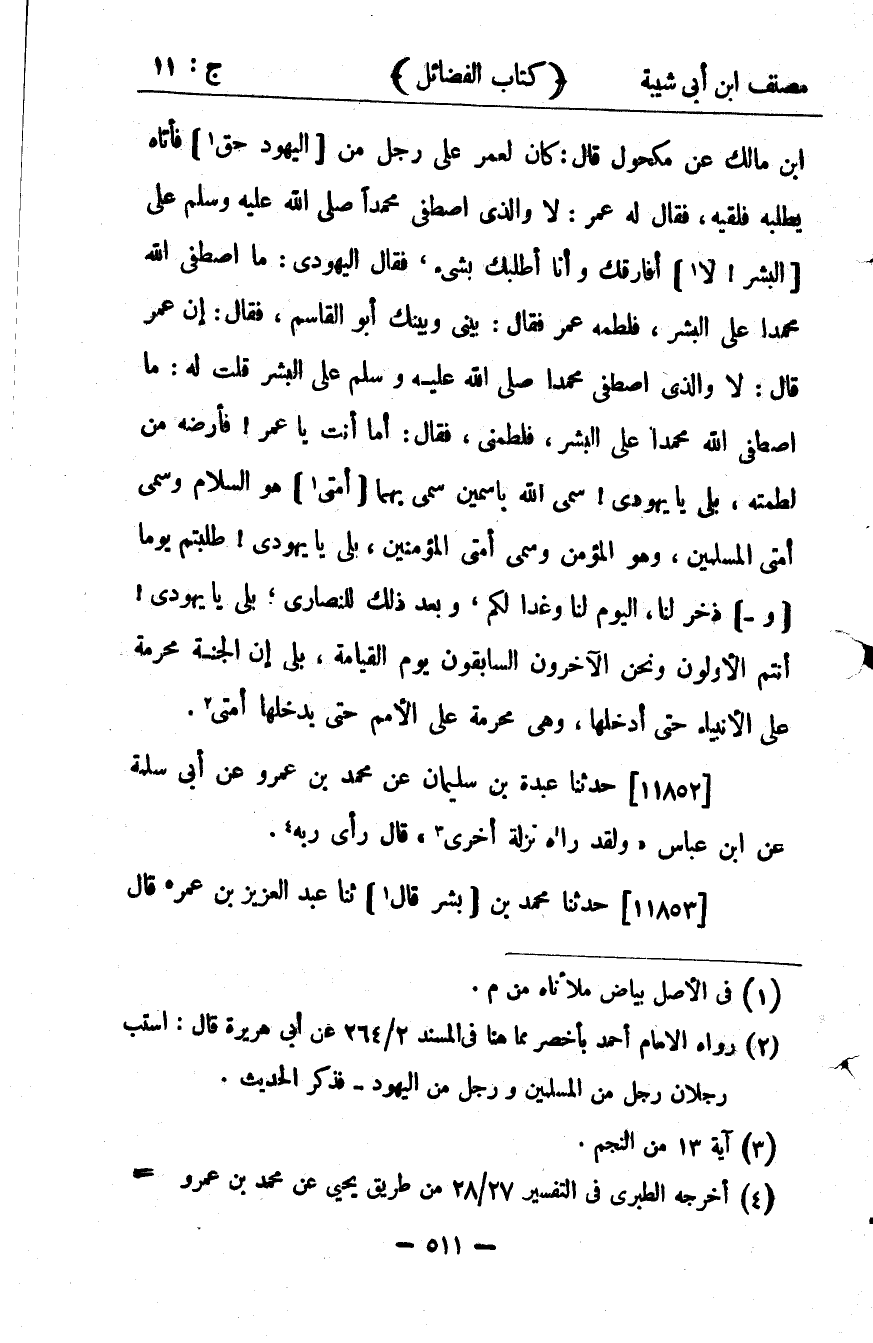 مصنف ابن أبى شيبة ﴿ كتاب الفضائل ﴾ ج : ١١
ابن مالك عن مكحول قال : كان لعمر على رجل من [ اليهود حق١ ] فأتاه
يطلبه فلقيه ، فقال له عمر : لا والذى اصطفى محمداً صلى الله عليه وسلم على
[ البشر ! لا١ ] أفارقك و أنا أطلبك بشىء ، فقال اليهودى : ما اصطفى الله
محمدا على البشر ، فلطمه عمر فقال : بينى وبينك أبو القاسم ، فقال : إن عمر
قال : لا والذى اصطفى محمدا صلى الله عليه و سلم على البشر قلت له : ما
اصطفى الله محمدا على البشر ، فلطمنى ، فقال : أما أنت يا عمر ! فأرضه من
لطمته ، بلى يا يهودى ! سمى الله باسمين سمى بهما [ أمتى١ ] هو السلام وسمى
أمتى المسلمين ، وهو المؤمن وسمى أمتى المؤمنين ، بلى يا يهودى ! طلبتم يوما
[ و - ] ذخر لنا ، اليوم لنا وغدا لكم ، و بعد ذلك للنصارى ؛ بلى يا يهودى !
أنتم الأولون ونحن الآخرون السابقون يوم القيامة ، بلى إن الجنة محرمة
على الأنبياء حتى أدخلها ، وهى محرمة على الأمم حتى يدخلها أمتى٢ .
[١١٨٥٢] حدثنا عبدة بن سليمان عن محمد بن عمرو عن أبى سلمة
عن ابن عباس « ولقد راٰه نزلة أخرى٣ » قال رأى ربه٤ .
[١١٨٥٣] حدثنا محمد بن [ بشر قال١ ] ثنا عبد العزيز بن عمر٥ قال
(١) فى الأصل بياض ملأناه من م .
(٢) رواه الامام أحمد بأخصر مما هنا فى المسند ٢٦٤/٢ عن أبى هريرة قال : استب
رجلان رجل من المسلمين و رجل من اليهود - فذكر الحديث .
(٣) آية ١٣ من النجم .
(٤) أخرجه الطبرى فى التفسير ٢٨/٢٧ من طريق يحيى عن محمد بن عمرو =
- ٥١١ -